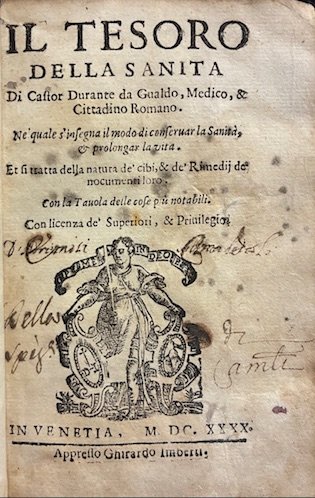 IL TESORO
DELLA SANITA
Di Castor Durante da Gualdo, Medico, &
Cittadino Romano.
Ne'quale s'insegna il modo di conseruar la Sanità,
& prolongar la vita.
Et si tratta della natura de' cibi, & de' Rimedij de'
nocumenti loro.
Con la Tauola delle cose più notabili.
Con licenza de' Superiori, & Priuilegio.
IN VENETIA, M. DC. XXXX.
Appresso Ghirardo Imberti.